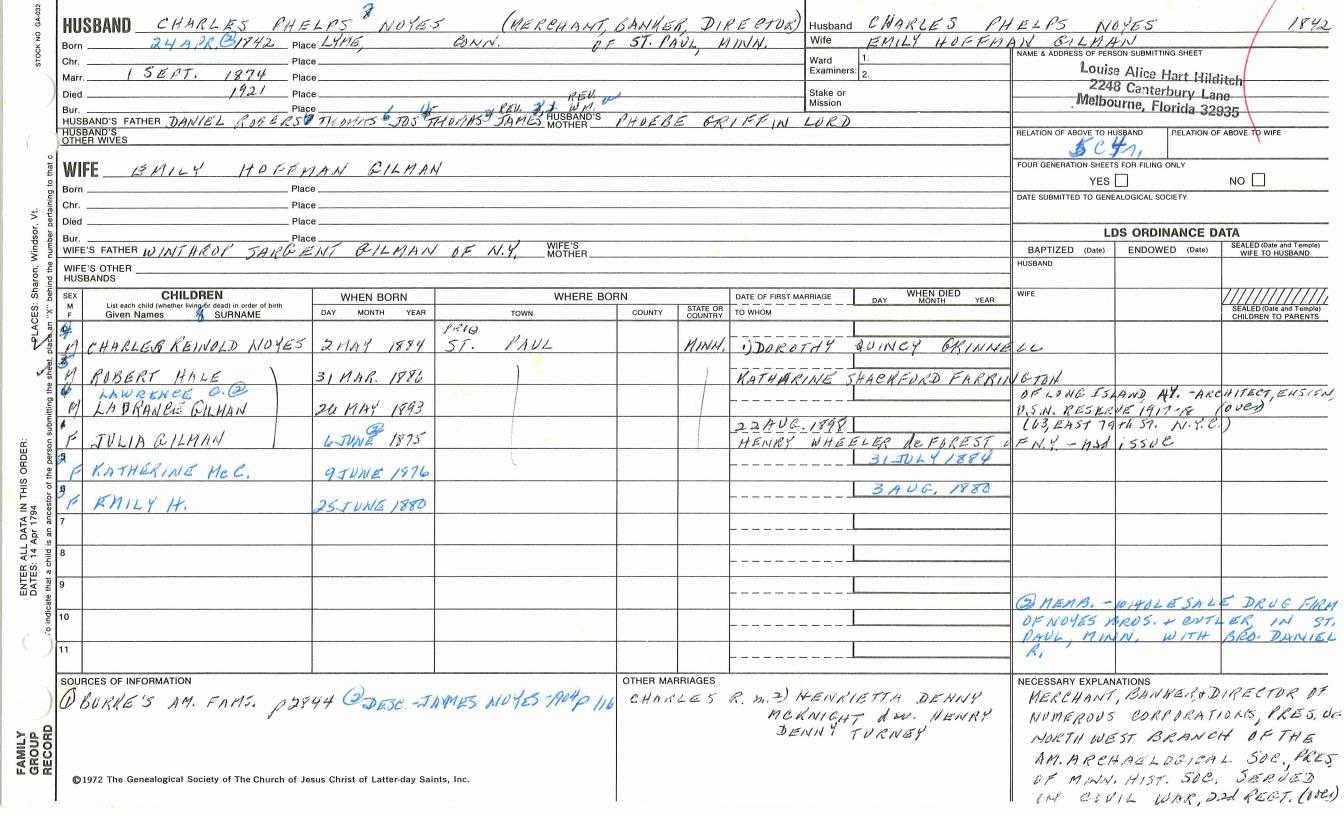 STOCK NO GA-032
HUSBAND CHARLES PHELPS 8 NOYES (MERCHANT, BANKER, DIRECTOR)
Born 24 APR. ② 1842 Place LYME, CONN. OF ST. PAUL, MINN.
Chr. Place
Marr. 1 SEPT. 1874 Place
Died 1921 Place
Bur. Place
HUSBAND'S FATHER DANIEL ROGERS 7 THOMAS 6 JOS 5 THOMAS JAMES REV. WM. HUSBAND'S MOTHER PHOEBE GRIFFIN LORD
HUSBAND'S OTHER WIVES
WIFE EMILY HOFFMAN GILMAN
Born Place
Chr. Place
Died Place
Bur. Place
WIFE'S FATHER WINTHROP SARGENT GILMAN OF N.Y. WIFE'S MOTHER
WIFE'S OTHER HUSBANDS
Husband CHARLES PHELPS NOYES 1842
Wife EMILY HOFFMAN GILMAN
Ward Examiners: 1.
2.
Stake or Mission
NAME & ADDRESS OF PERSON SUBMITTING SHEET
Louise Alice Hart Hilditch
2248 Canterbury Lane
Melbourne, Florida 32935
RELATION OF ABOVE TO HUSBAND RELATION OF ABOVE TO WIFE
FOUR GENERATION SHEETS FOR FILING ONLY
YES NO
DATE SUBMITTED TO GENEALOGICAL SOCIETY
LDS ORDINANCE DATA
BAPTIZED (Date) ENDOWED (Date) SEALED (Date and Temple) WIFE TO HUSBAND
HUSBAND
WIFE
SEALED (Date and Temple) CHILDREN TO PARENTS
SEX M F CHILDREN WHEN BORN WHERE BORN DATE OF FIRST MARRIAGE WHEN DIED
List each child (whether living or dead) in order of birth
Given Names SURNAME DAY MONTH YEAR TOWN COUNTY STATE OR COUNTRY TO WHOM DAY MONTH YEAR
4 M CHARLES REINOLD NOYES 2 MAY 1884 ST. PAUL MINN. 1) DOROTHY QUINCY GRINNELL
5 M ROBERT HALE 31 MAR. 1886 KATHARINE SHACKFORD FARRINGTON
LAWRENCE G. ②
M LAURANCE GILMAN 26 MAY 1893
OF LONG ISLAND, NY. - ARCHITECT, ENSIGN,
U.S.N. RESERVE 1917-18 (over)
(63, EAST 79th ST. N.Y.C.)
1 F JULIA GILMAN 6 JUNE ② 1875 22 AUG. 1898
HENRY WHEELER deFOREST OF N.Y. - had issue
2 F KATHERINE McC. 9 JUNE 1876 31 JULY 1884
3 F EMILY H. 25 JUNE 1880 3 AUG. 1880
7
8
9
10
11
② MEMB. - WHOLESALE DRUG FIRM
OF NOYES BROS. + CUTLER, IN ST.
PAUL, MINN. WITH BRO. DANIEL
R.
SOURCES OF INFORMATION
① BURKE'S AM. FAMS. p2844 ② DESC. - JAMES NOYES - 1904 p 116
OTHER MARRIAGES
CHARLES R. m. 2) HENRIETTA DENNY
McKNIGHT dw. HENRY
DENNY TURNEY
NECESSARY EXPLANATIONS
MERCHANT, BANKER + DIRECTOR OF
NUMEROUS CORPORATIONS, PRES. OF
NORTH WEST BRANCH OF THE
AM. ARCHAELOGICAL SOC., PRES
OF MINN. HIST. SOC. SERVED
IN CIVIL WAR, 22d REGT. (over)
©1972 The Genealogical Society of The Church of Jesus Christ of Latter-day Saints, Inc.
FAMILY GROUP RECORD
ENTER ALL DATA IN THIS ORDER:
DATES: 14 Apr 1794
PLACES: Sharon, Windsor, Vt.
To indicate that a child is an ancestor of the person submitting the sheet, place an "X" behind the number pertaining to that c